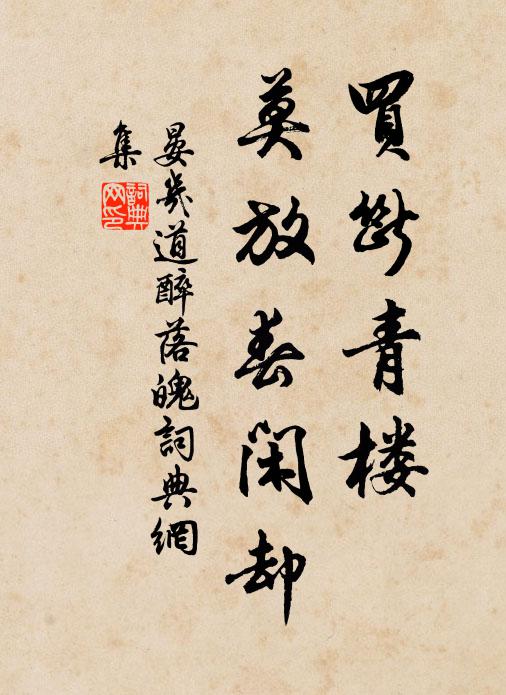 買斷青楼
莫放春閑却
晏幾道醉落魄詞典網
集
詞典網印